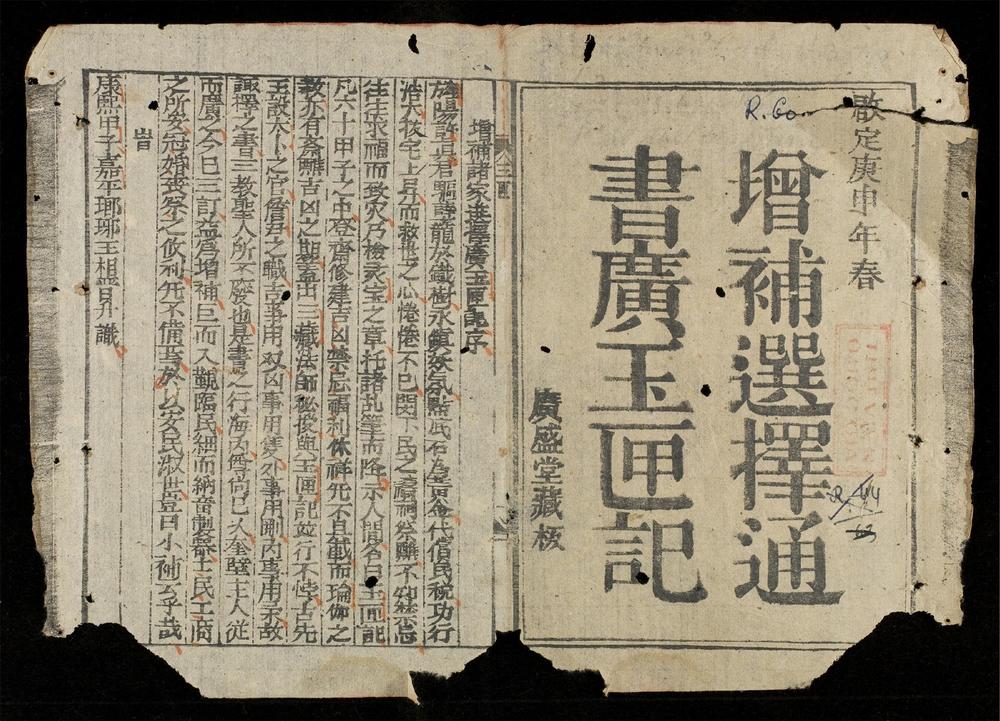 R.60
啟定庚申年春
增補選擇通
書廣玉匣記
廣盛堂藏板
增補諸家選擇廣玉匣記序
旌陽許眞君驅毒龍於鐵樹永鎮妖氛點瓦石為黃金代償民稅功行
浩大拔宅上昇而救世之心惓惓不已閔下民之禱祠祭醮不知禁忌
往往求福而致灾乃檢灵宝之章托諸乩筆而降示人間名曰玉匣記
凡六十甲子之中登齋修建吉凶禁忌福利休祥无不具載而瑜伽之
教亦有斎醮吉凶之期盖出三藏法師秘授與玉匣記並行不悖古先
王設太卜之官詹尹之職吉事用双凶事用隻外事用剛內事用柔故
諏擇之書三教聖人所不廢也是書之行海內尚已久奎壁主人從
而廣之今已三訂益為增補巨而入覲臨民細而納音製器士民工商
之所必冠婚喪祭之攸利无不備焉於以安民淑世豈曰小補云乎哉
旹
康熙甲子嘉平瑯琊王相晋升識